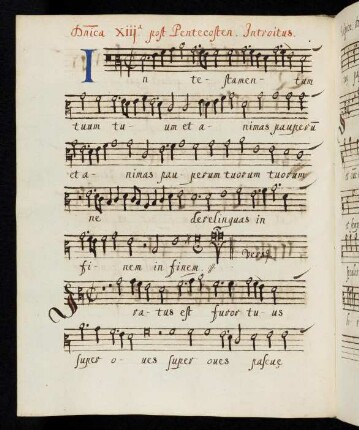 Dnica XIIIª post Pentecosten. Introitus.
I n te- stamen- tum
tuum tu- um et a- nimas pauperū
et a- nimas pau- perum tuorum tuorum
ne derelinquas in
fi- nem in finem
ra- tus est furor tu us
super o- ues super oues pascuę